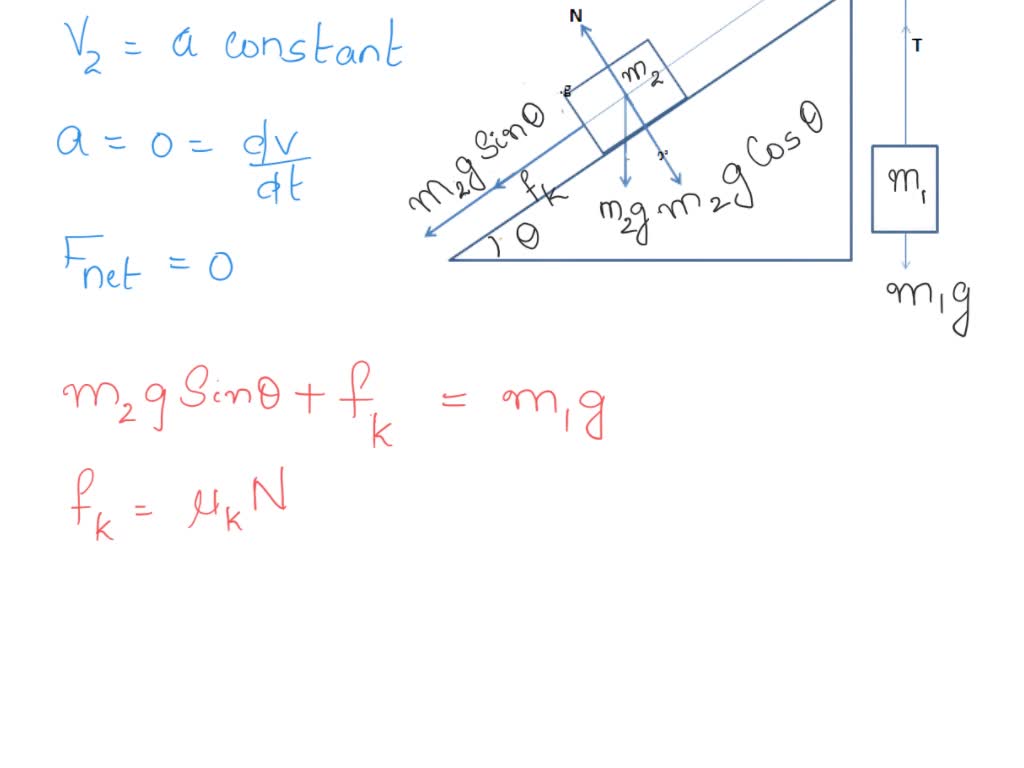 V₂ = a constant
a = 0 = dv/dt
Fnet = 0
N
T
m₂
m₁
m₂g Sinθ
fk
θ
m₂g
m₂g Cosθ
m₁g
m₂g Sinθ + fk = m₁g
fk = μk N